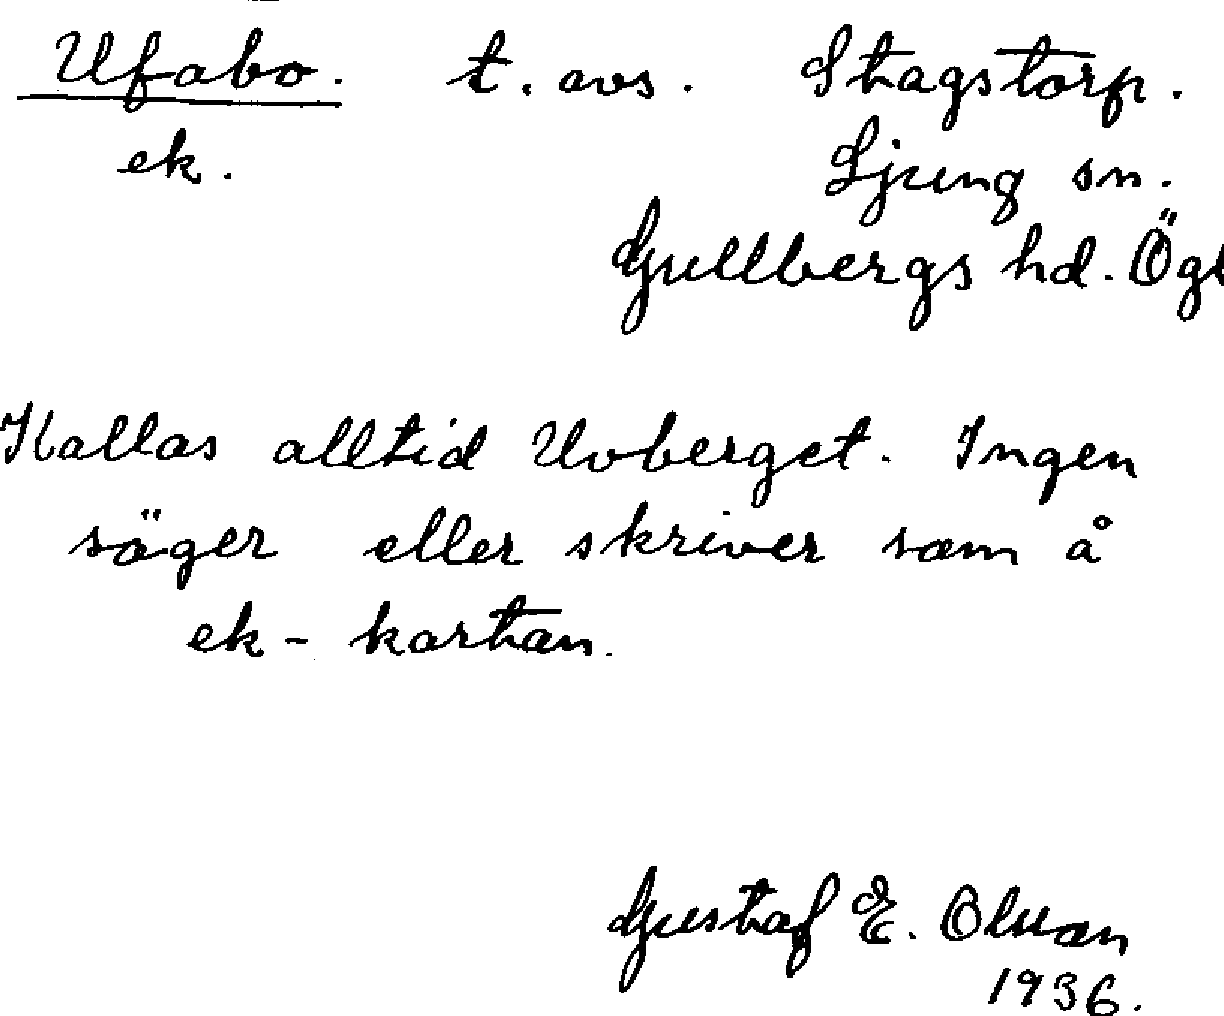 Ufabo. t. avs. Stagstorp.
ek. Ljung sn.
Gullbergs hd. Ögl
Kallas alltid Uvberget. Ingen
säger eller skriver som å
ek - kartan.
Gustaf E.
1936.